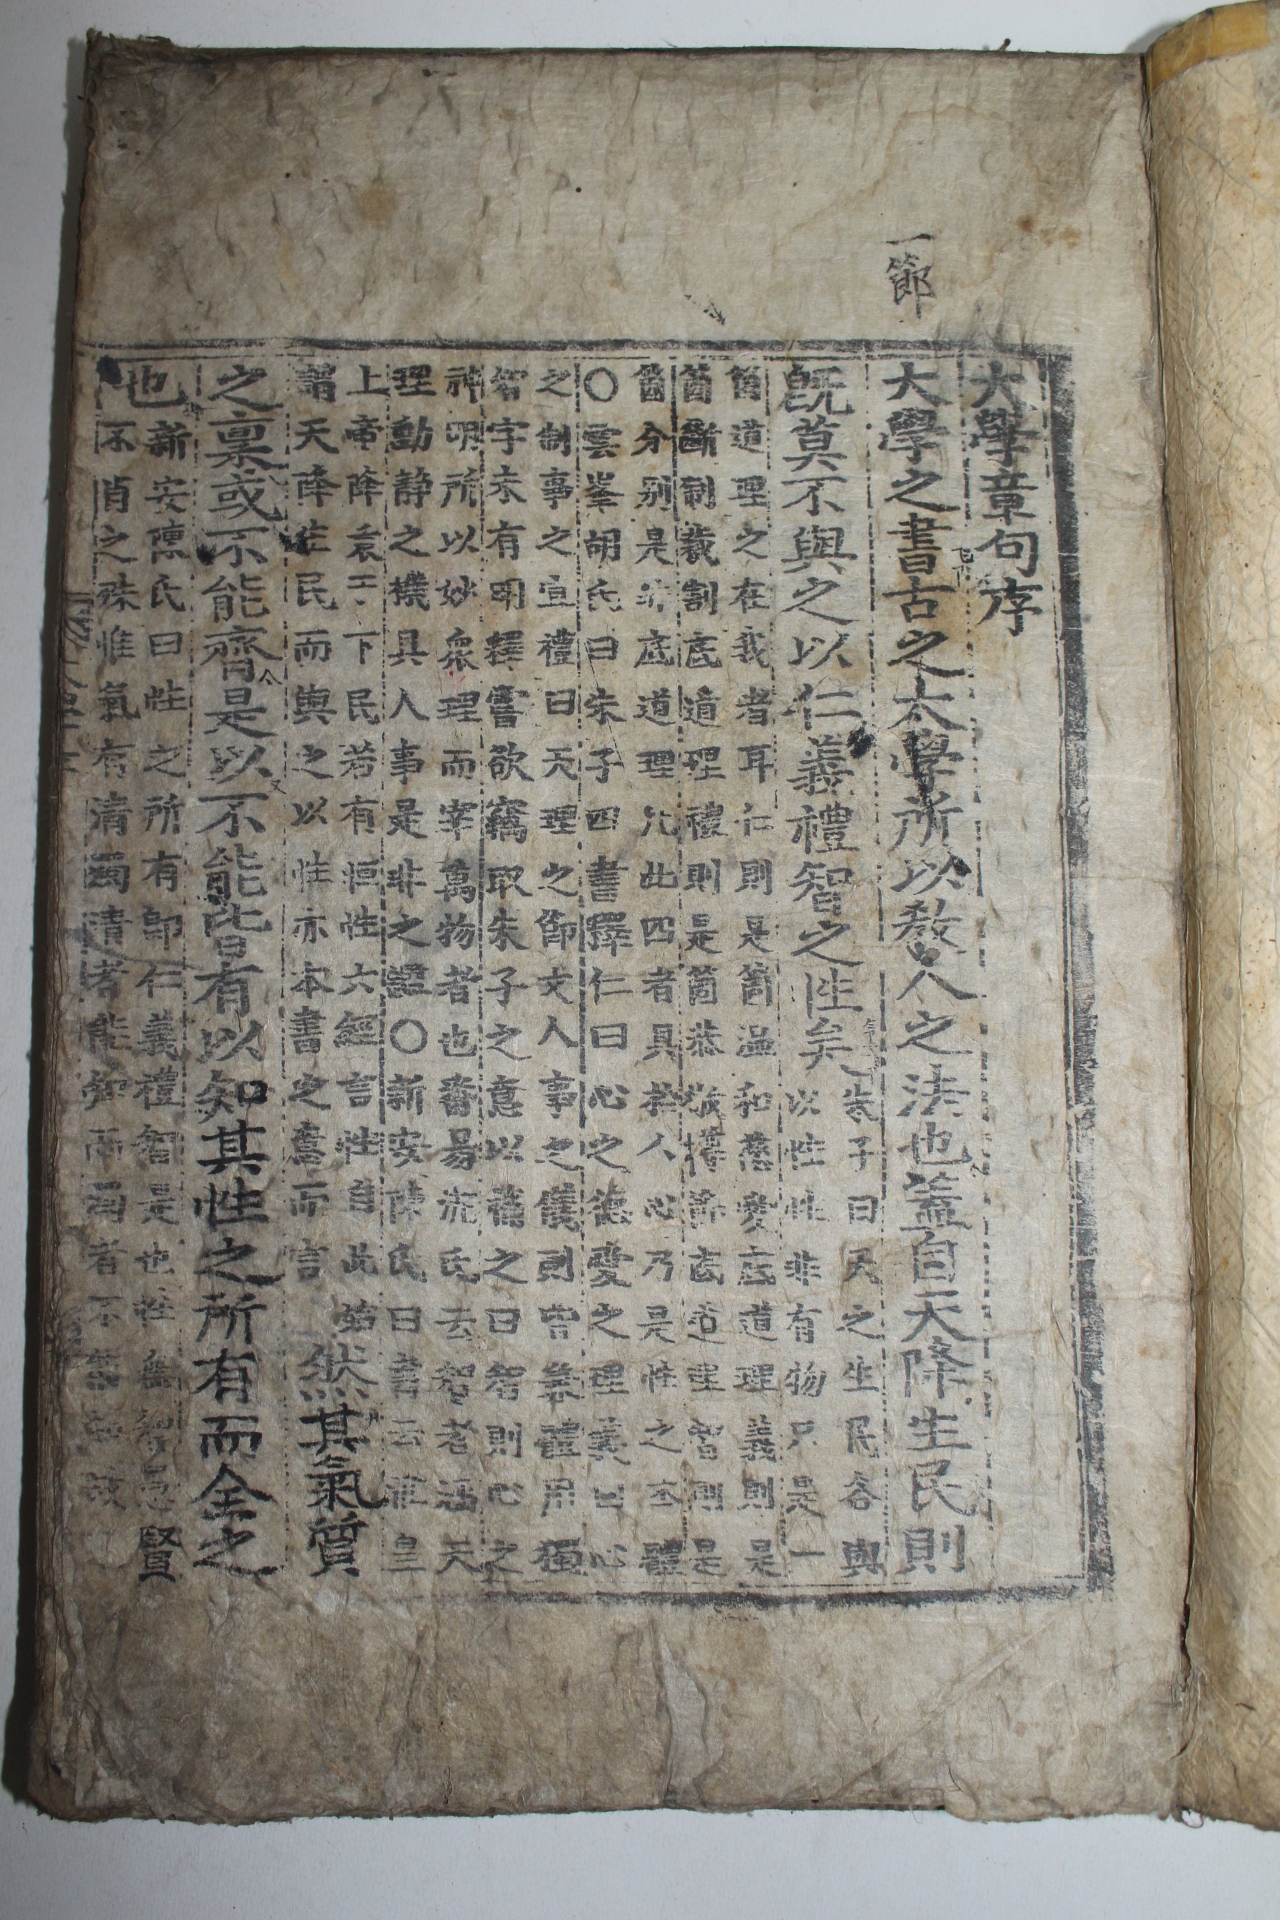 一節
大學章句序
大學之書古之太學所以敎人之法也盖自天降生民則
旣莫不與之以仁義禮智之性矣
朱子曰天之生民各與
以性性非有物只是一
箇道理之在我者耳仁則是箇溫和慈愛底道理義則是
箇斷制裁割底道理禮則是箇恭敬撙節底道理智則是
箇分別是非底道理凡此四者具於人心乃是性之本體
○雲峯胡氏曰朱子四書釋仁曰心之德愛之理義曰心
之制事之宜禮曰天理之節文人事之儀則皆兼體用獨
智字未有明釋嘗欲竊取朱子之意以補之曰智則心之
神明所以妙衆理而宰萬物者也番昜沈氏云智者涵天
理動靜之機具人事是非之鑑○新安陳氏曰書云惟皇
上帝降衷于下民若有恒性六經言性自此始
謂天降生民而與之以性亦本書之意而言
然其氣質
之稟或不能齊是以不能皆有以知其性之所有而全之
也
新安陳氏曰性之所有卽仁義禮智是也性無智愚賢
不肖之殊惟氣有淸濁淸者能知而濁者不能知故